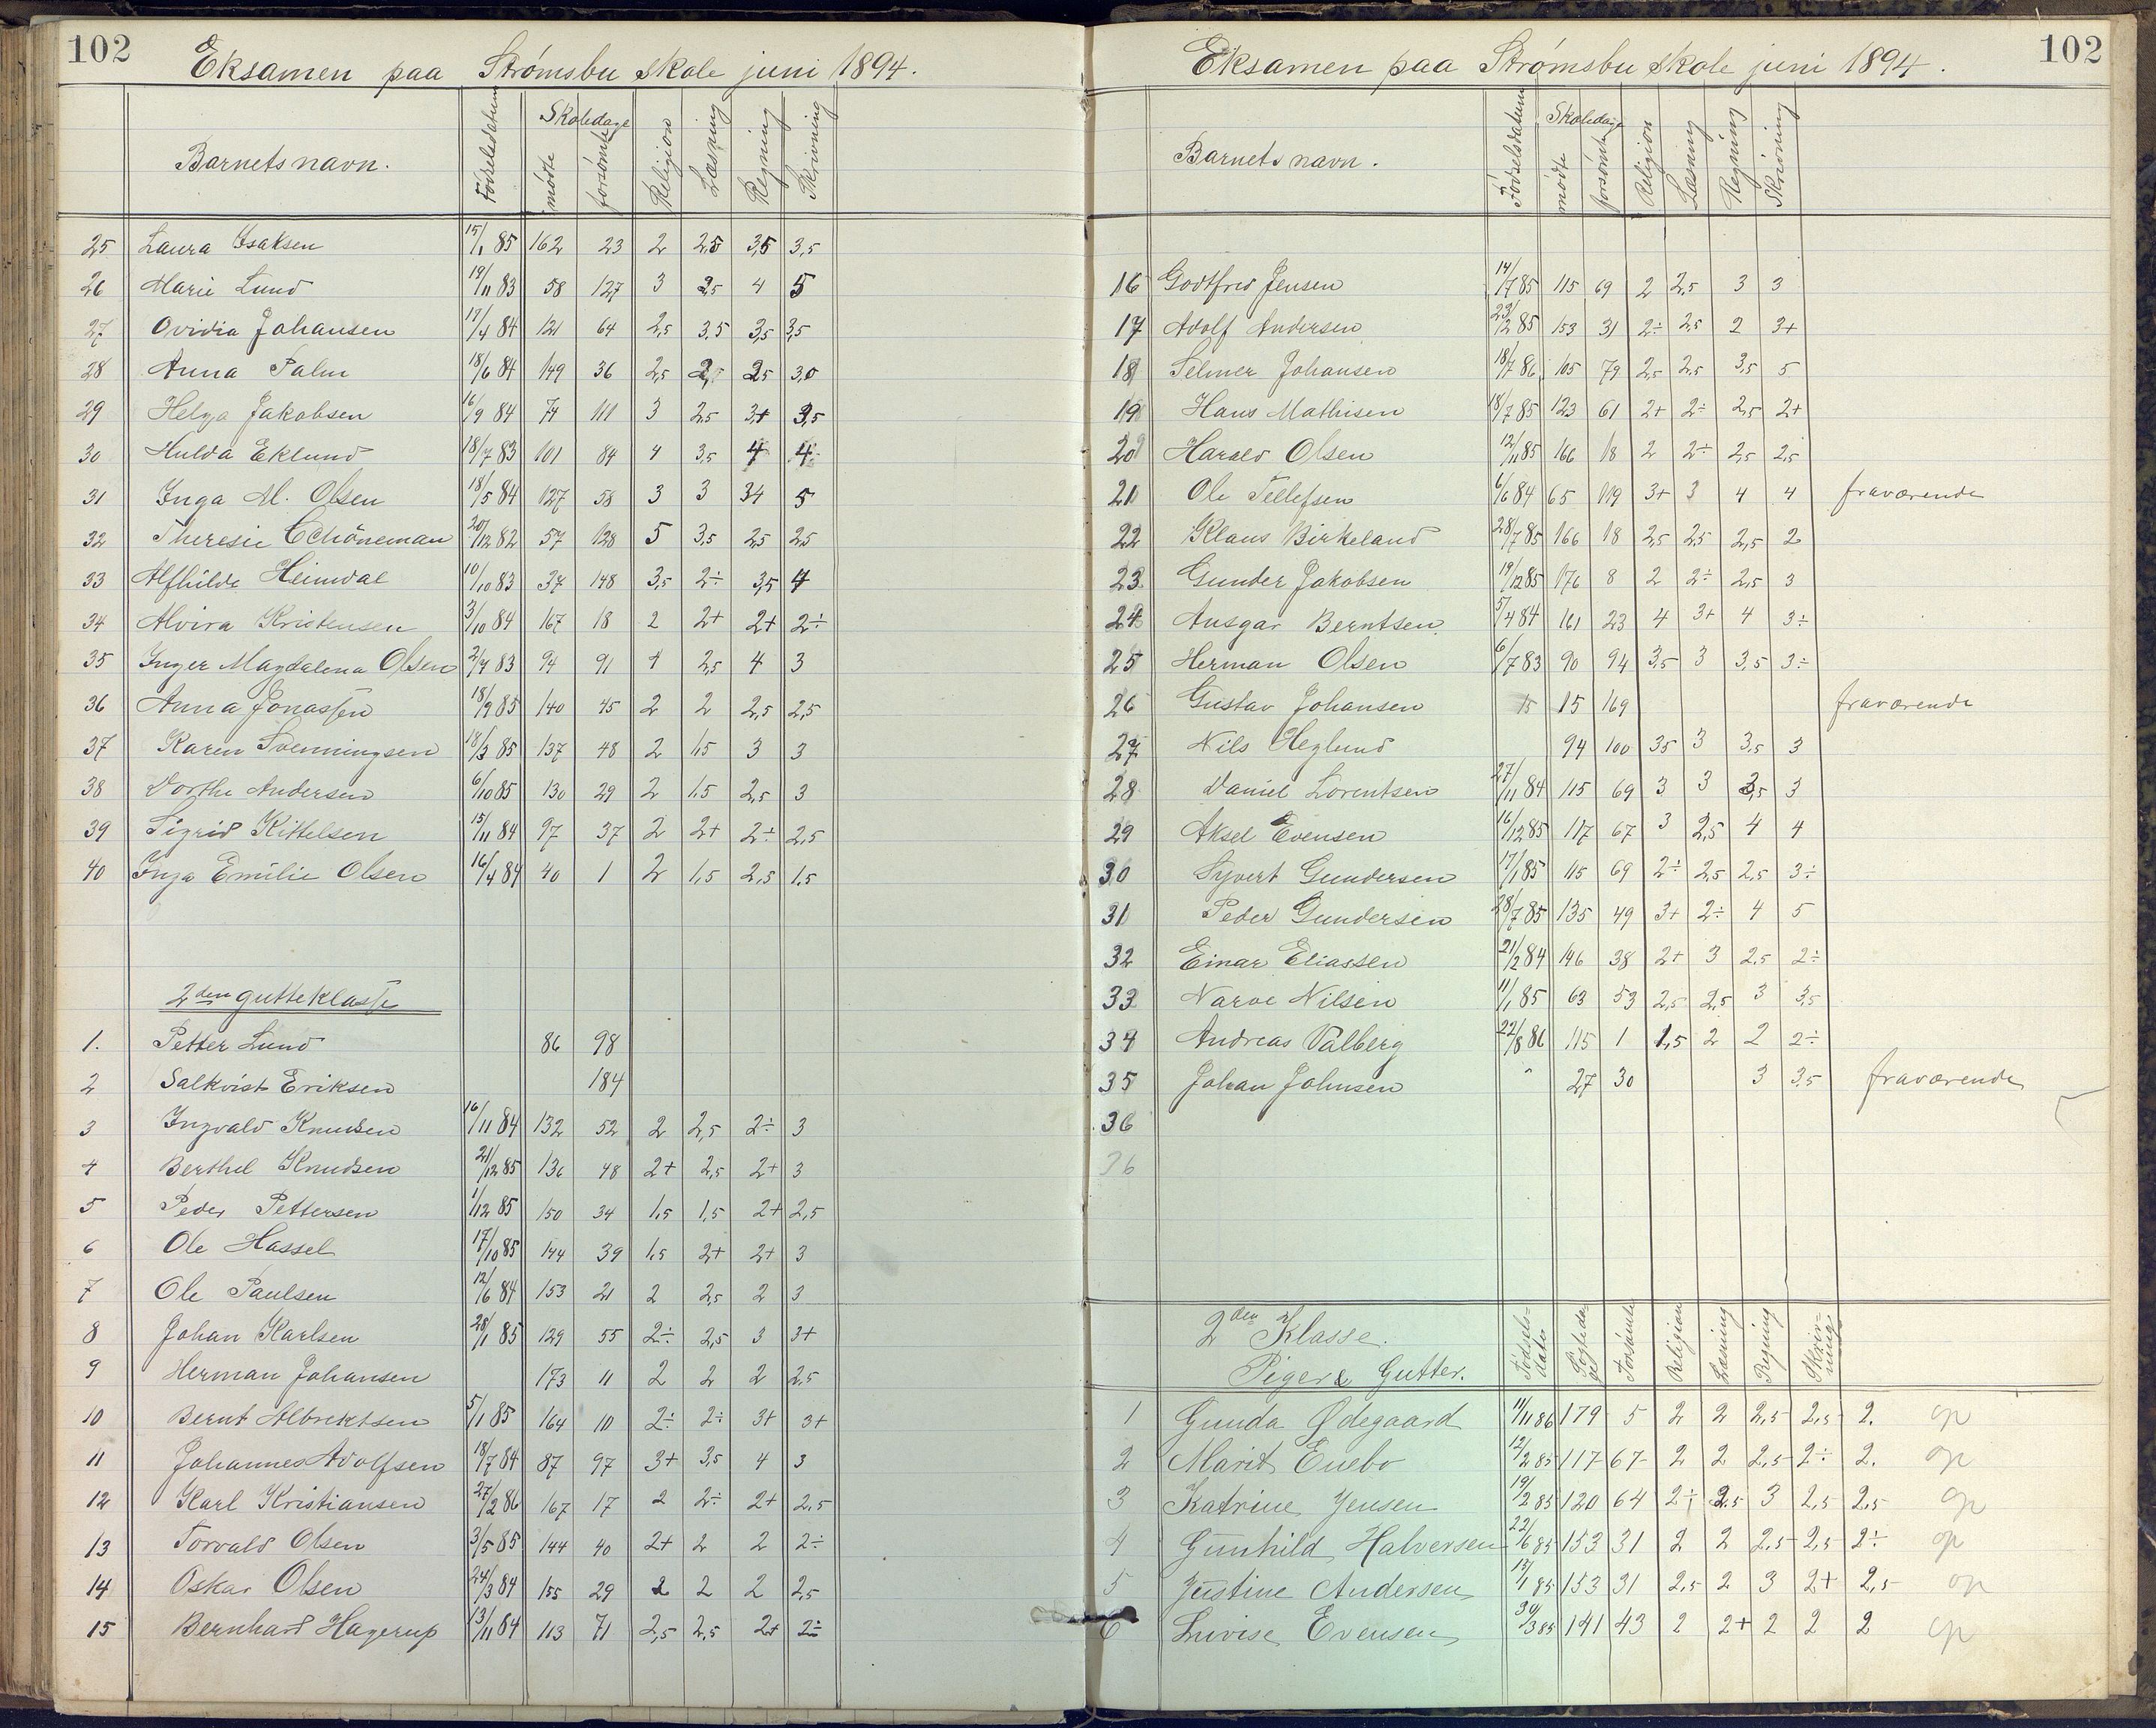 102
Eksamen paa Strømsbu skole juni 1894.
Barnets navn. Fødselsdatum Skoledage mødte forsømte Religion Læsning Regning Skrivning
25 Laura Isaksen 15/1 85 162 23 2 2,5 3,5 3,5
26 Marie Lund 19/11 83 58 127 3 2,5 4 5
27 Ovidia Johansen 17/4 84 121 64 2,5 3,5 3,5 3,5
28 Anna Palm 18/6 84 149 36 2,5 2,5 2,5 3,0
29 Helga Jakobsen 16/9 84 74 111 3 2,5 3+ 3,5
30 Hulda Eklund 18/7 83 101 84 4 3,5 4 4
31 Inga M. Olsen 18/5 84 127 58 3 3 34 5
32 Theresie Schöneman 20/12 82 57 128 5 3,5 2,5 2,5
33 Alfhilde Heimdal 10/10 83 37 148 3,5 2÷ 3,5 4
34 Alvira Kristensen 3/10 84 167 18 2 2+ 2+ 2÷
35 Inger Magdalena Olsen 2/4 83 94 91 4 2,5 4 3
36 Anna Jonassen 18/9 85 140 45 2 2 2,5 2,5
37 Karen Svenningsen 18/3 85 137 48 2 1,5 3 3
38 Dorthe Andersen 6/10 85 130 29 2 1,5 2,5 3
39 Sigrid Kittelsen 15/11 84 97 37 2 2+ 2÷ 2,5
40 Inga Emilie Olsen 16/4 84 40 1 2 1,5 2,5 1,5
2den gutteklasse
1. Petter Lund 86 98
2 Salkvist Eriksen 184
3 Ingvald Knudsen 16/11 84 132 52 2 2,5 2÷ 3
4 Berthel Knudsen 21/12 85 136 48 2+ 2,5 2+ 3
5 Peder Pettersen 1/12 85 150 34 1,5 1,5 2+ 2,5
6 Ole Hassel 17/10 85 144 39 1,5 2+ 2+ 3
7 Ole Paulsen 12/6 84 153 21 2 2,5 2 3
8 Johan Karlsen 28/1 85 129 55 2÷ 2,5 3 3+
9 Herman Johansen 173 11 2 2 2 2,5
10 Bernt Albrektsen 5/1 85 164 10 2÷ 2÷ 3+ 3+
11 Johannes Adolfsen 18/7 84 87 97 3+ 3,5 4 3
12 Karl Kristiansen 27/2 86 167 17 2 2÷ 2+ 2,5
13 Torvald Olsen 3/5 85 144 40 2+ 2 2 2÷
14 Oskar Olsen 24/3 84 155 29 2 2 2 2,5
15 Bernhard Hagerup 13/11 84 113 71 2,5 2,5 2+ 2÷
102
Eksamen paa Strømsbu skole juni 1894.
Barnets navn. Fødselsdatum Skoledage mødte forsømte Religion Læsning Regning Skrivning
16 Godtfred Jensen 14/7 85 115 69 2 2,5 3 3
17 Adolf Andersen 23/2 85 153 31 2÷ 2,5 2 3+
18 Selmer Johansen 18/7 86 105 79 2,5 2,5 3,5 5
19 Hans Mathisen 18/7 85 123 61 2+ 2÷ 2,5 2+
20 Harald Olsen 12/11 85 166 18 2 2÷ 2,5 2,5
21 Ole Tellefsen 6/6 84 65 119 3+ 3 4 4 fraværende
22 Klaus Birkeland 28/7 85 166 18 2,5 2,5 2,5 2
23 Gunder Jakobsen 19/12 85 176 8 2 2÷ 2,5 3
24 Ansgar Berntsen 5/4 84 161 23 4 3+ 4 3÷
25 Herman Olsen 6/7 83 90 94 3,5 3 3,5 3÷
26 Gustav Johansen 15 15 169 fraværende
27 Nils Heglund 94 100 35 3 3,5 3
28 Daniel Lorentsen 27/11 84 115 69 3 3 3,5 3
29 Aksel Evensen 16/12 85 117 67 3 2,5 4 4
30 Syvert Gundersen 17/1 85 115 69 2÷ 2,5 2,5 3÷
31 Peder Gundersen 28/7 85 135 49 3+ 2÷ 4 5
32 Einar Eliassen 21/2 84 146 38 2+ 3 2,5 2÷
33 Narve Nilsen 11/1 85 63 53 2,5 2,5 3 3,5
34 Andreas Valberg 22/8 86 115 1 1,5 2 2 2÷
35 Johan Johnsen 27 30 3 3,5 fraværende
36
36
2den Klasse.
Piger & Gutter. Fødsels-dato Søgte Forsømte Religion Læsning Regning Skriv-ning
1 Gunda Ødegaard 11/11 86 179 5 2 2 2,5 2,5 2. op
2 Marit Enebo 12/2 85 117 67 2 2 2,5 2÷ 2. op
3 Katrine Jensen 19/2 85 120 64 2÷ 2,5 3 2,5 2,5 op
4 Gunhild Halversen 22/6 85 153 31 2 2 2,5 2,5 2÷ op
5 Justine Andersen 15/1 85 153 31 2,5 2 3 2+ 2,5 op
6 Lovise Evensen 30/3 85 141 43 2 2+ 2 2 2 op